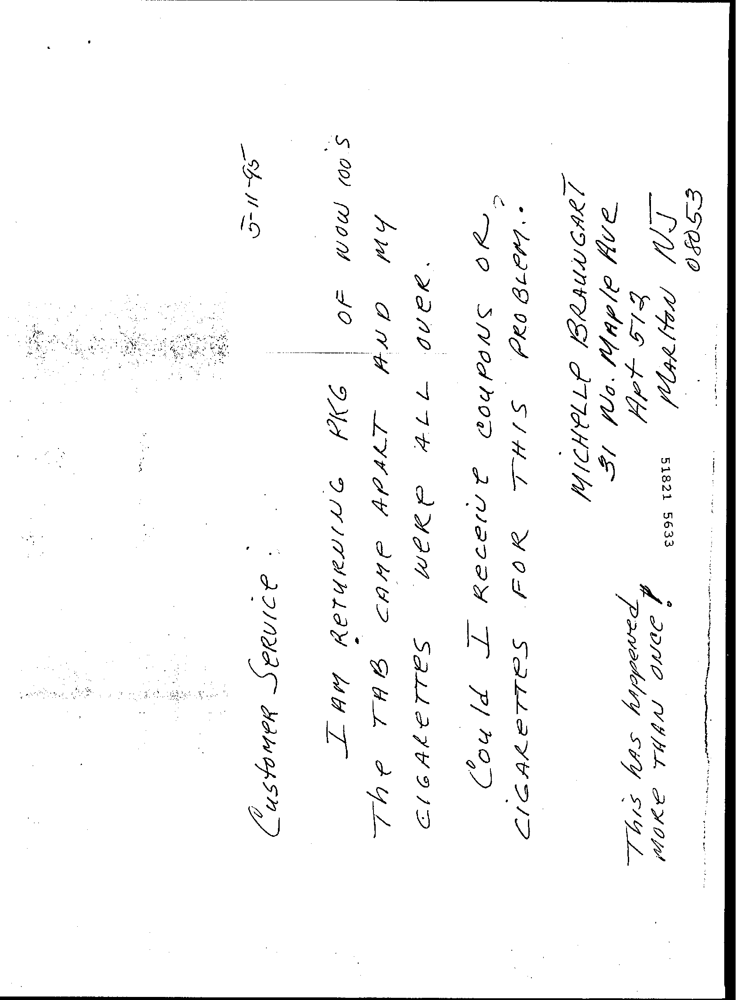 5-11-95
Customer Service:
I AM RETURNING PKG OF NOW 100's
The TAB CAME APART AND MY
CIGARETTES WERE ALL OVER.
Could I Receive COUPONS OR
CIGARETTES FOR THIS PROBLEM.?
MICHELLE BRAUNGART
31 No. MAPle AVE
Apt 512
MARlton NJ
08053
This has happened
MORE THAN ONCE!
51821 5633